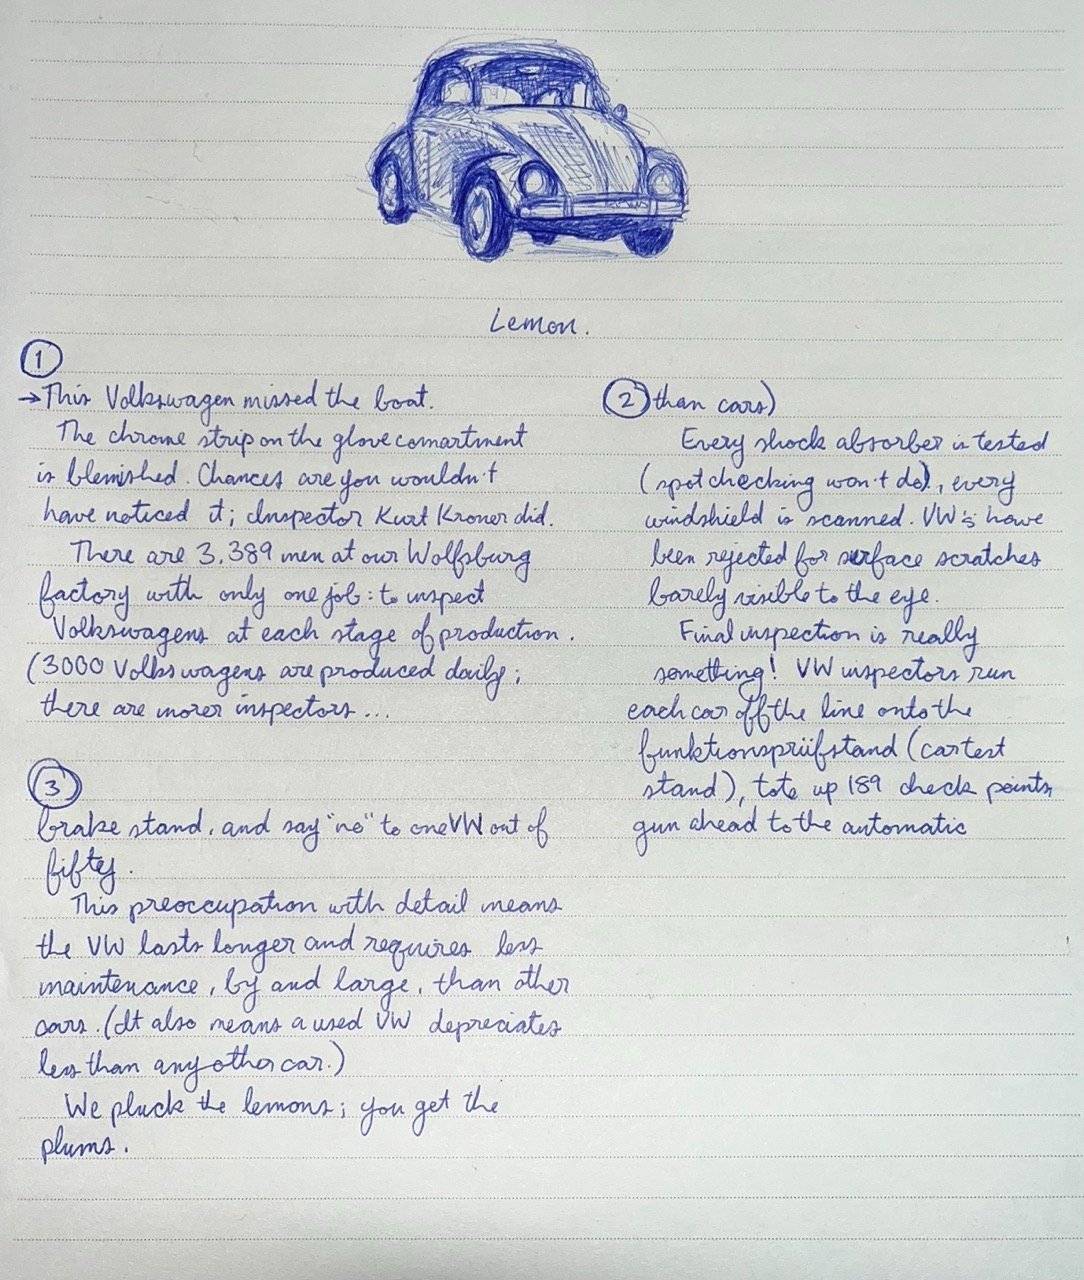 Lemon.
1
→ This Volkswagen missed the boat.
The chrome strip on the glove comartment
is blemished. Chances are you wouldn't
have noticed it; Inspector Kurt Kroner did.
There are 3,389 men at our Wolfsburg
factory with only one job: to inspect
Volkswagens at each stage of production.
(3000 Volkswagens are produced daily;
there are morer inspectors...
2 than cars)
Every shock absorber is tested
(spot checking won't do), every
windshield is scanned. VW's have
been rejected for surface scratches
barely visible to the eye.
Final inspection is really
something! VW inspectors run
each car off the line onto the
funktionsprüfstand (car test
stand), tote up 189 check points,
gun ahead to the automatic
3
brake stand, and say "no" to one VW out of
fifty.
This preoccupation with detail means
the VW lasts longer and requires less
maintenance, by and large, than other
cars. (It also means a used VW depreciates
less than any other car.)
We pluck the lemons; you get the
plums.